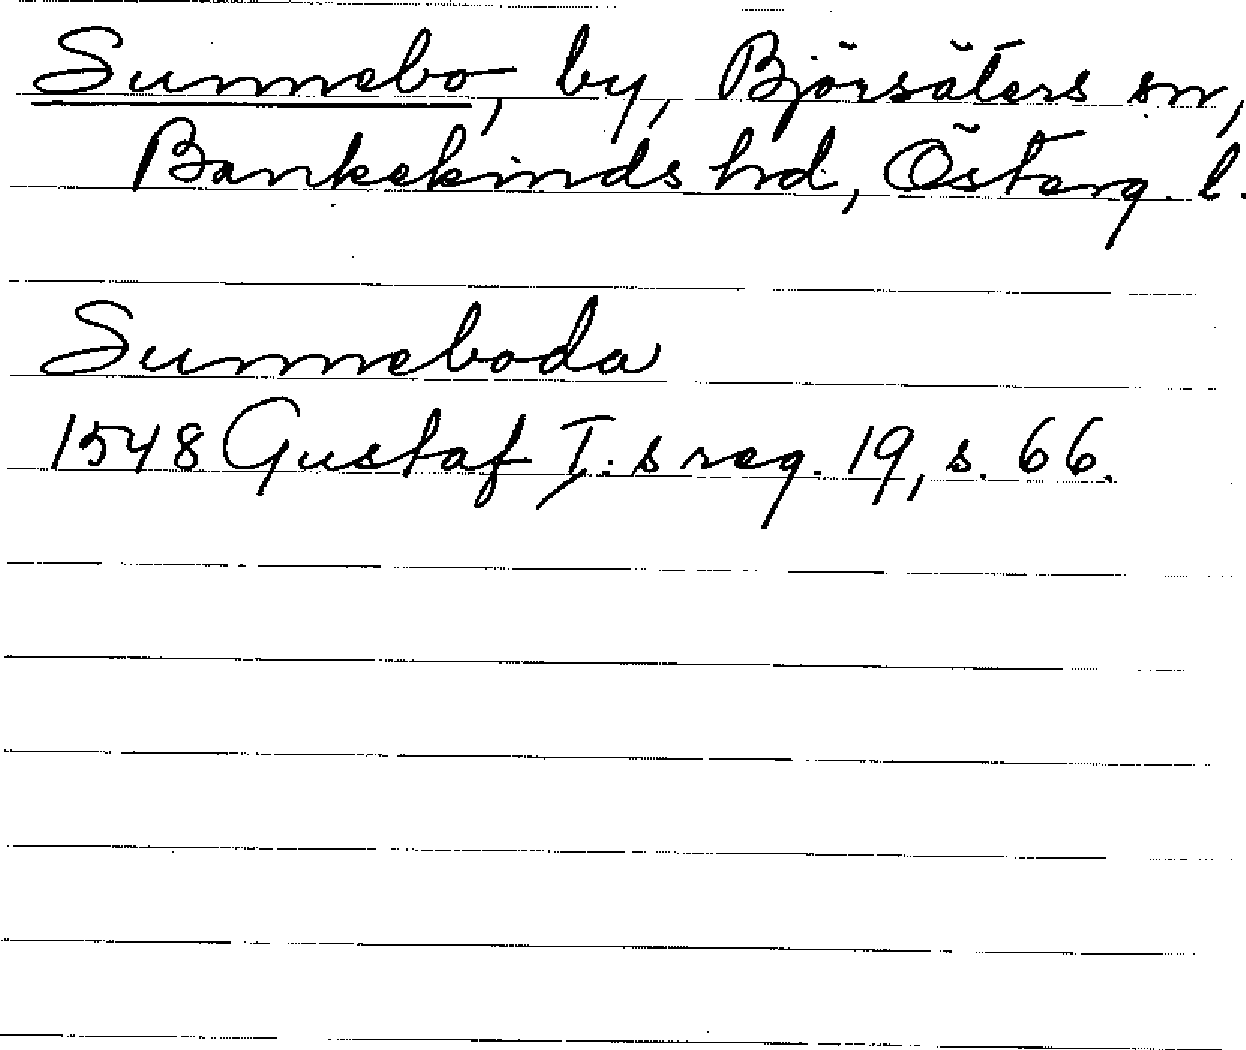 Sunnebo, by, Björsäters sn,
Bankekinds hd, Österg. l.
Sunneboda
1548 Gustaf I:s reg. 19, s. 66.